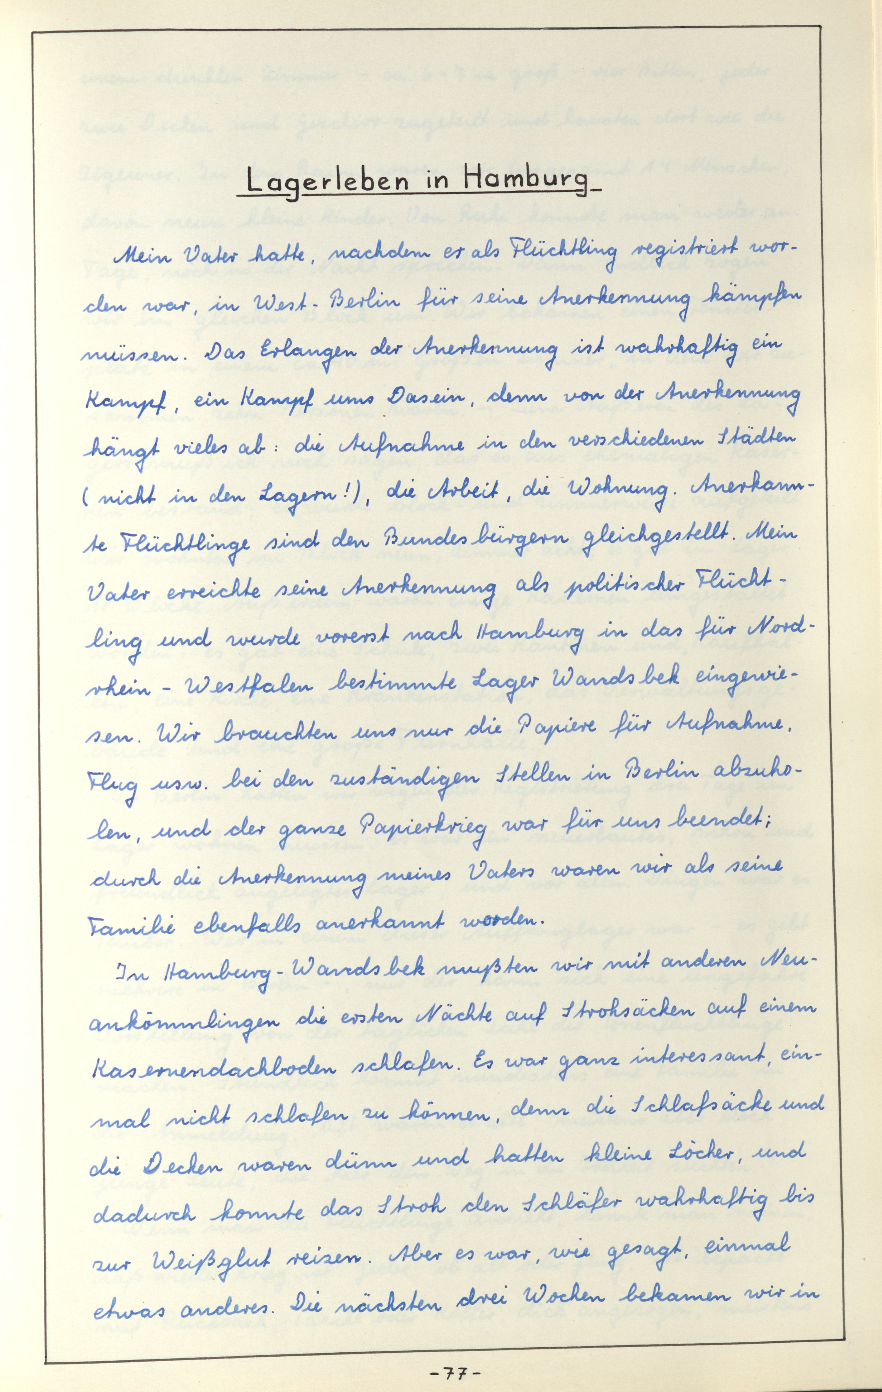 Lagerleben in Hamburg
Mein Vater hatte, nachdem er als Flüchtling registriert wor-
den war, in West-Berlin für seine Anerkennung kämpfen
müssen. Das Erlangen der Anerkennung ist wahrhaftig ein
Kampf, ein Kampf ums Dasein, denn von der Anerkennung
hängt vieles ab: die Aufnahme in den verschiedenen Städten
(nicht in den Lagern!), die Arbeit, die Wohnung. Anerkann-
te Flüchtlinge sind den Bundesbürgern gleichgestellt. Mein
Vater erreichte seine Anerkennung als politischer Flücht-
ling und wurde vorerst nach Hamburg in das für Nord-
rhein-Westfalen bestimmte Lager Wandsbek eingewie-
sen. Wir brauchten uns nur die Papiere für Aufnahme,
Flug usw. bei den zuständigen Stellen in Berlin abzuho-
len, und der ganze Papierkrieg war für uns beendet;
durch die Anerkennung meines Vaters waren wir als seine
Familie ebenfalls anerkannt worden.
In Hamburg-Wandsbek mußten wir mit anderen Neu-
ankömmlingen die ersten Nächte auf Strohsäcken auf einem
Kasernendachboden schlafen. Es war ganz interessant, ein-
mal nicht schlafen zu können, denn die Schlafsäcke und
die Decken waren dünn und hatten kleine Löcher, und
dadurch konnte das Stroh den Schläfer wahrhaftig bis
zur Weißglut reizen. Aber es war, wie gesagt, einmal
etwas anderes. Die nächsten drei Wochen bekamen wir in
-77-